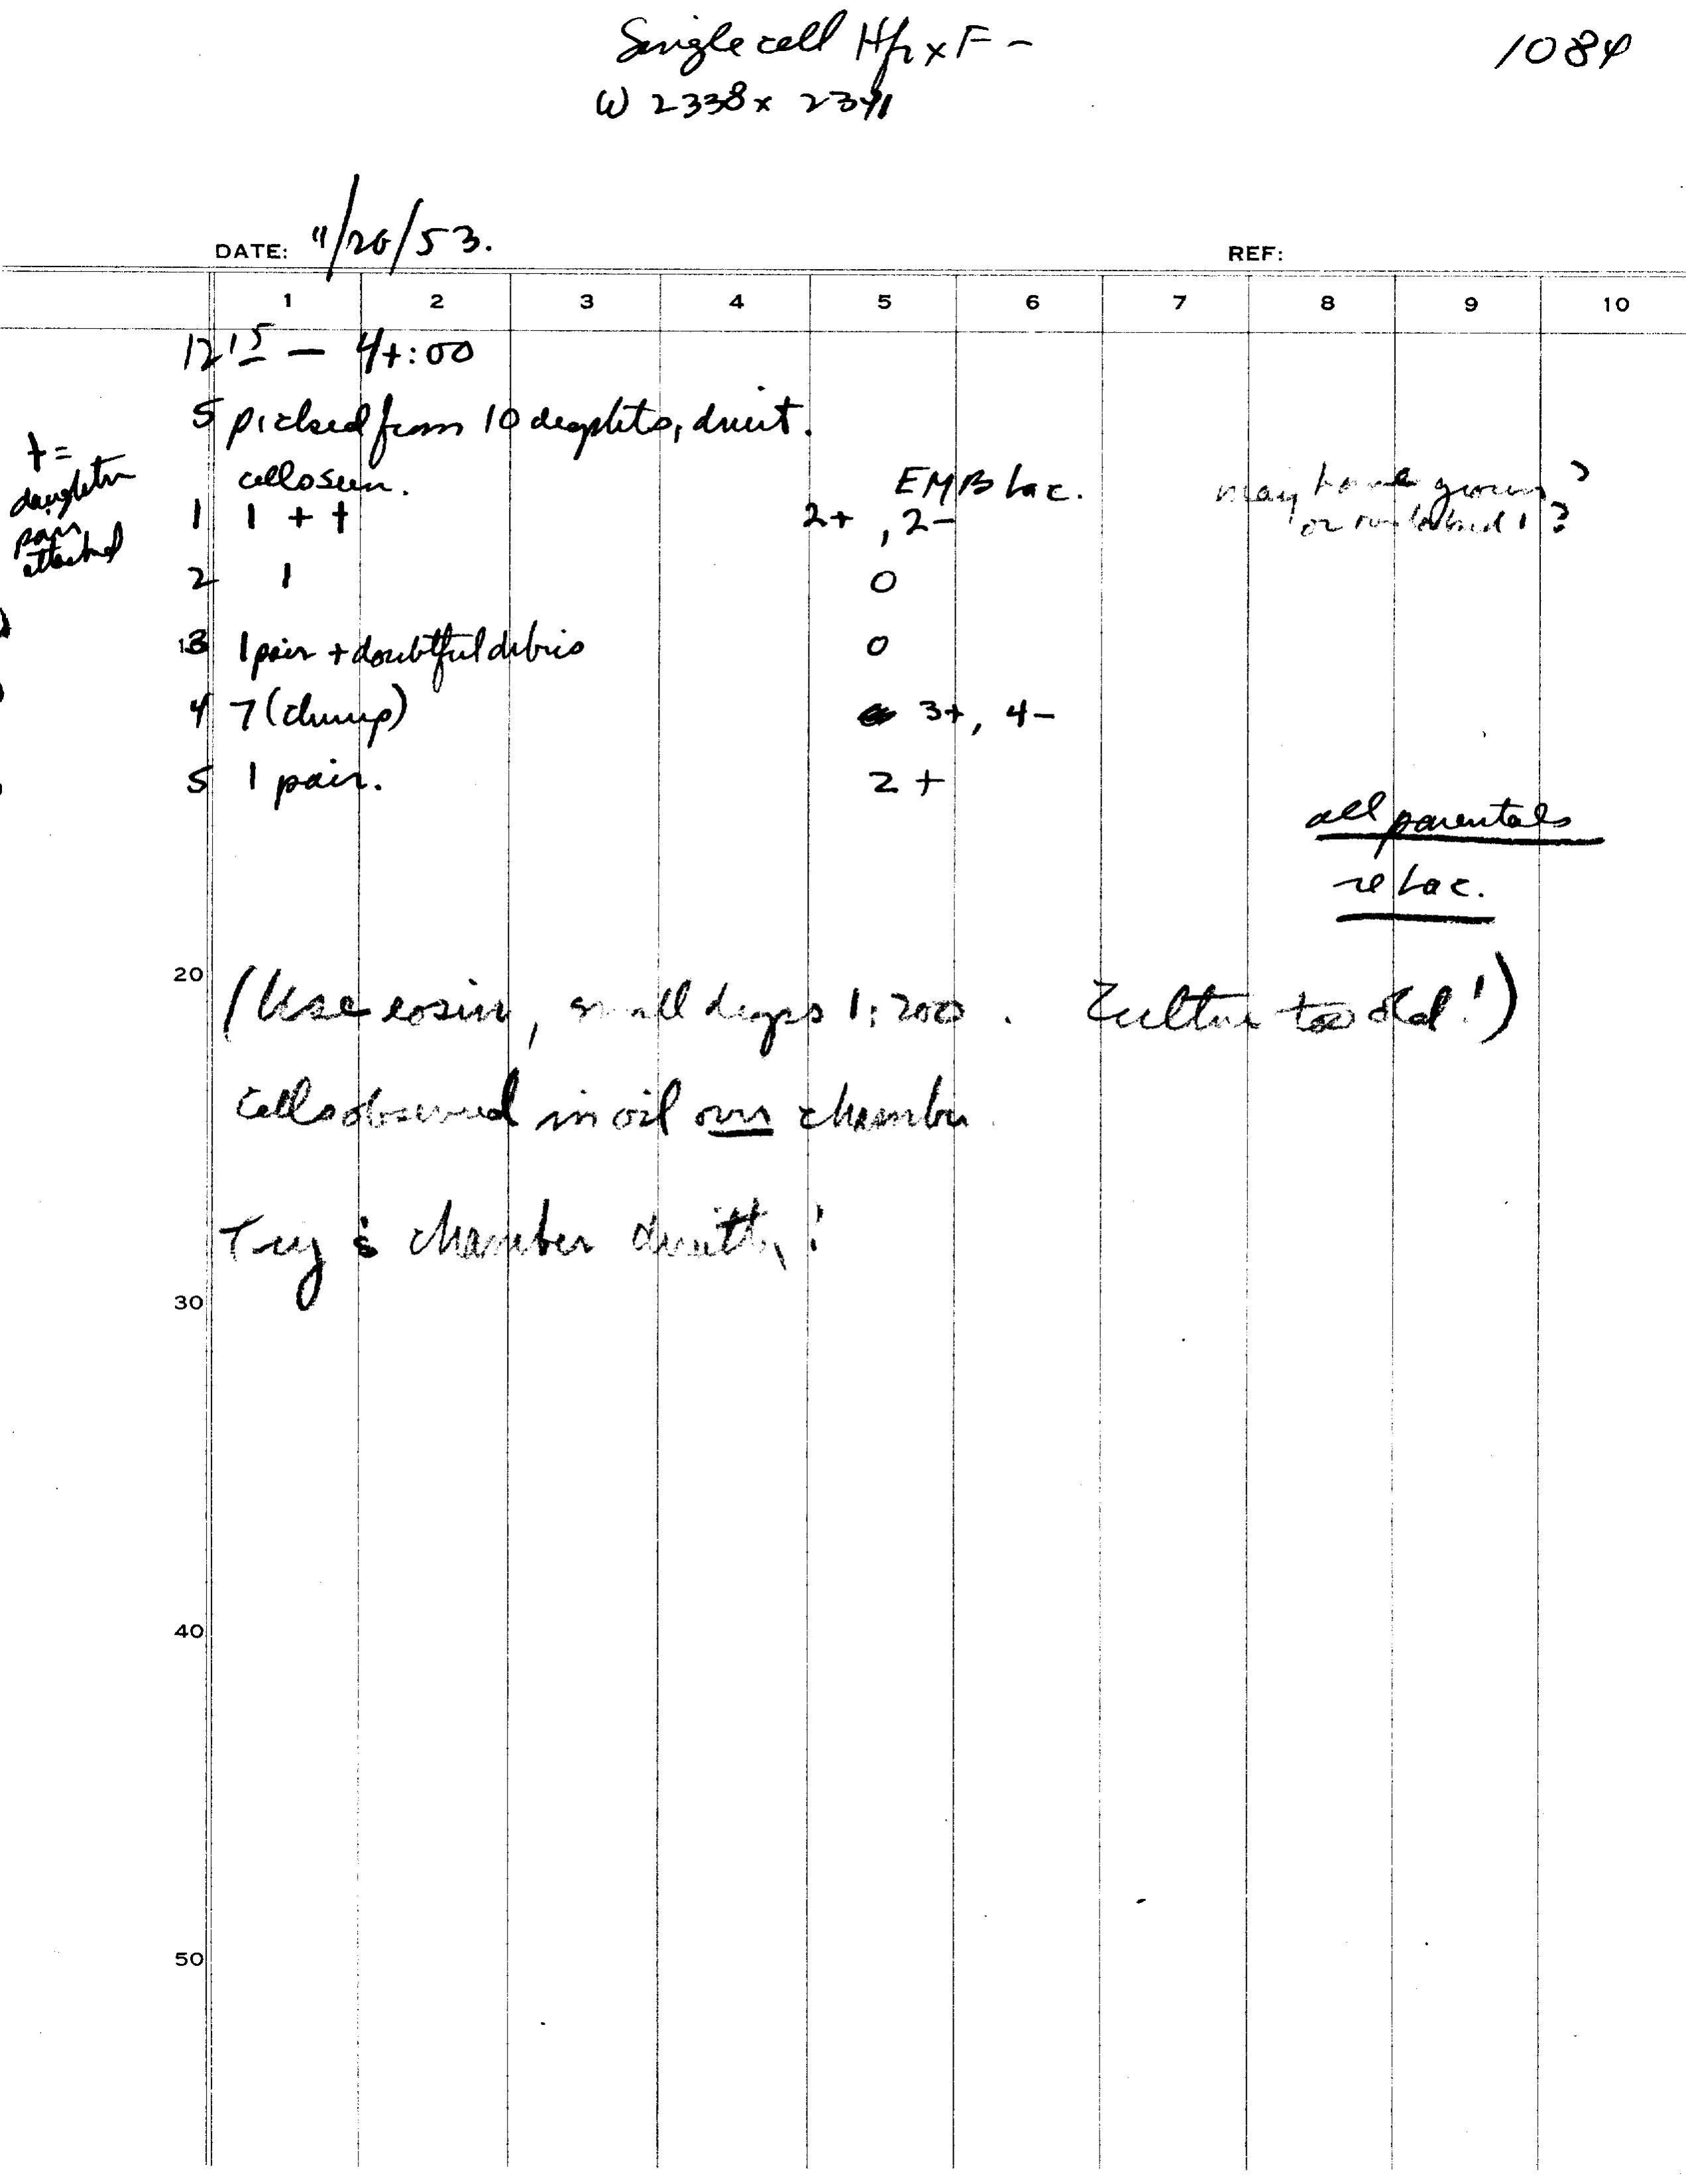 Single cell Hfr x F -
1084
W 2338 x 2341
DATE: 11/26/53.
REF:
1 2 3 4 5 6 7 8 9 10
12 15 — 4+:00
5 picked from 10 droplets, direct.
† = daughter pair attached
cells seen. EMB Lac. may have grown?
1 1 + † 2+, 2- or
2 1 0
3 1 pair + doubtful debris 0
4 7 (clump) 3+, 4-
5 1 pair. 2 +
all parentals
re Lac.
20
(Use eosin, small drops 1:200. Culture too old!)
Cells observed in oil over chamber.
Try chamber directly!
30
40
50